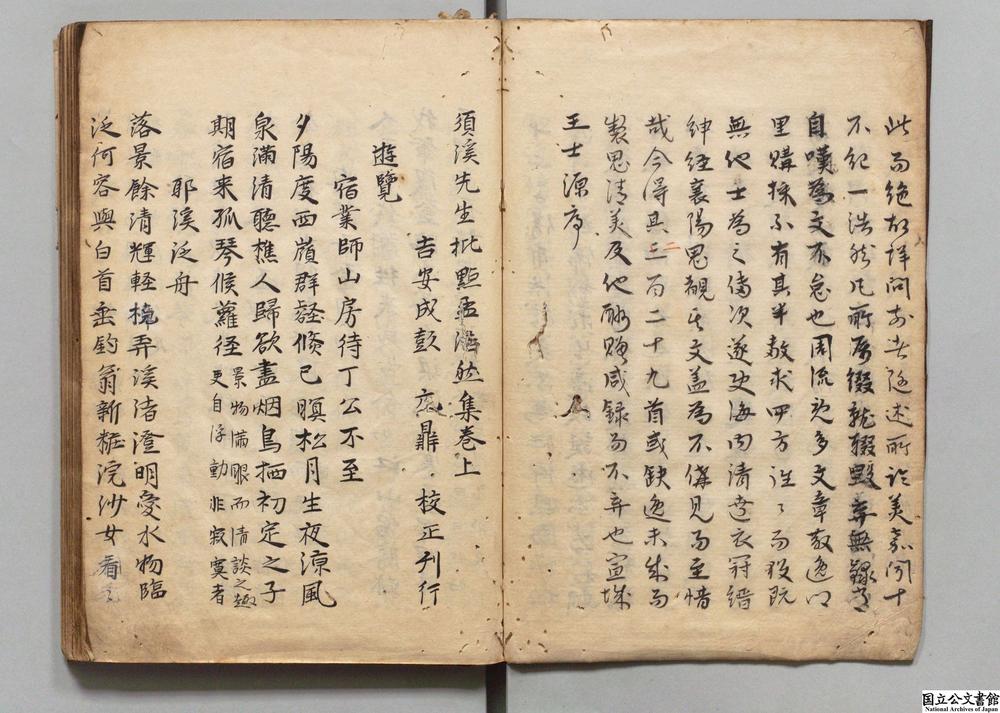 此而絕故詳問者隨述所論美嘉聞十
不紀一浩然凡所属綴就輟毀弃無錄常
自嘆為文不怠也周流既多文章散逸
里購採不有其半敷求四方往々而獲既
無他士為之傳次遂使海内清達衣冠縉
紳經襄陽思覩其文盖為不備見而至惜
哉今得其三百二十九首或缺逸未成而
製思清美及他酬贈咸録而不弃也宣城
王士源序
須溪先生批點孟浩然集卷上
吉安成彭 元鼎 校正刊行
遊覽
宿業師山房待丁公不至
夕陽度西嶺群壑倐已瞑松月生夜涼風
泉滿清聽樵人歸欲盡烟鳥栖初定之子
期宿来孤琴候蘿径
景物滿眼而清談之趣
更自浮動非寂寞者
耶溪泛舟
落景餘清輝軽橈弄溪渚澄明愛水物臨
泛何容與白首垂釣翁新粧浣沙女看看
国立公文書館
National Archives of Japan